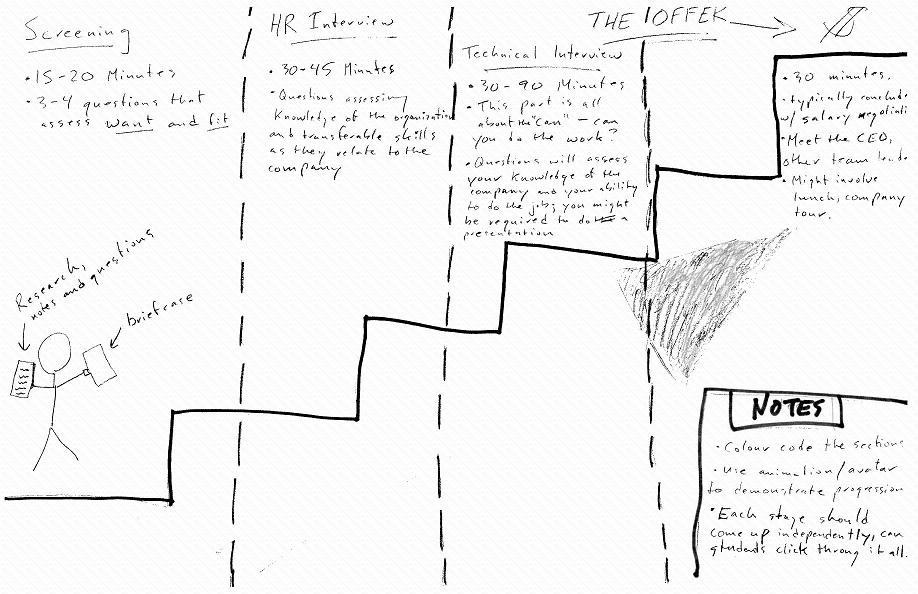 Screening
• 15-20 Minutes
• 3-4 questions that
assess want and fit
HR Interview
• 30-45 Minutes
• Questions assessing
Knowledge of the organization
and transferable skills
as they relate to the
company
Technical Interview
• 30-90 Minutes
• This part is all
about the "can" - can
you do the work?
• Questions will assess
your knowledge of the
company and your ability
to do the job; you might
be required to do a
presentation
THE OFFER
• 30 minutes.
• typically conclude
w/ salary negotiati
• Meet the CEO,
other team
• Might involve
lunch, company
tour.
Research,
notes and questions
briefcase
NOTES
• Colour code the sections
• use animation/avatar
to demonstrate progression
• Each stage should
come up independently, can
students click throug it all.